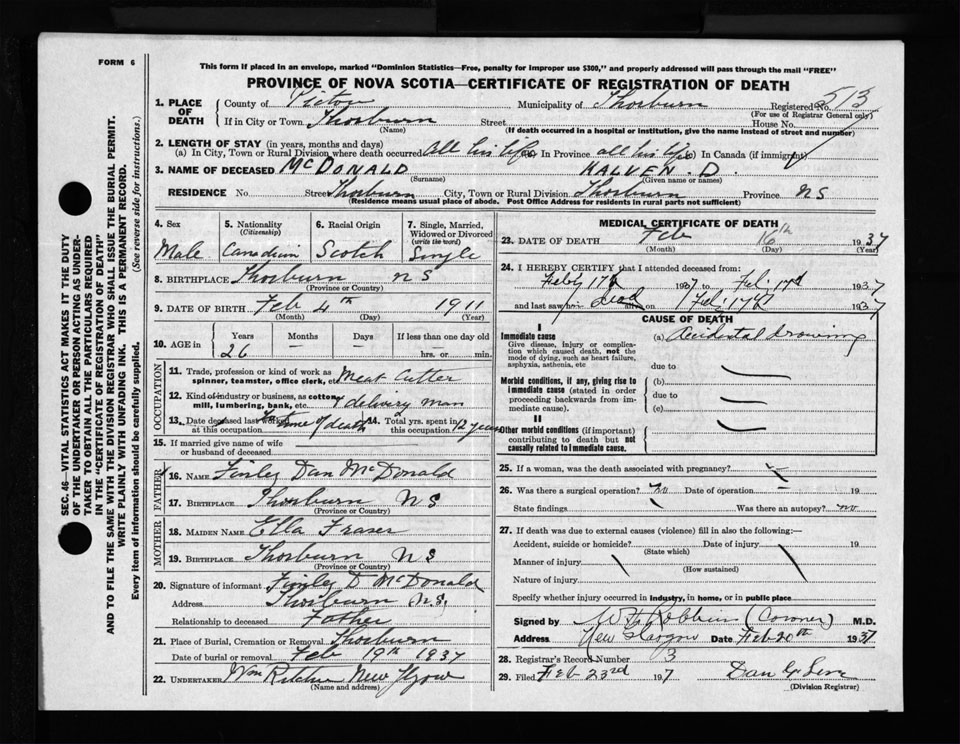 FORM 6
This form if placed in an envelope, marked "Dominion Statistics—Free, penalty for improper use $300," and properly addressed will pass through the mail "FREE"
PROVINCE OF NOVA SCOTIA—CERTIFICATE OF REGISTRATION OF DEATH
SEC. 46—VITAL STATISTICS ACT MAKES IT THE DUTY
OF THE UNDERTAKER OR PERSON ACTING AS UNDER-
TAKER TO OBTAIN ALL THE PARTICULARS REQUIRED
IN THE "CERTIFICATE OF REGISTRATION OF DEATH"
AND TO FILE THE SAME WITH THE DIVISION REGISTRAR WHO SHALL ISSUE THE BURIAL PERMIT.
WRITE PLAINLY WITH UNFADING INK. THIS IS A PERMANENT RECORD.
Every item of information should be carefully supplied. (See reverse side for instructions.)
1. PLACE OF DEATH
County of Pictou Municipality of Thorburn Registered No. 513
(For use of Registrar General only)
If in City or Town Thorburn Street House No.
(Name) (If death occurred in a hospital or institution, give the name instead of street and number)
2. LENGTH OF STAY (in years, months and days)
(a) In City, Town or Rural Division where death occurred all his life In Province all his life In Canada (if immigrant)
3. NAME OF DECEASED McDONALD HALVEN. D.
(Surname) (Given name or names)
RESIDENCE No. Street Thorburn City, Town or Rural Division Thorburn Province N S
(Residence means usual place of abode. Post Office Address for residents in rural parts not sufficient)
4. Sex 5. Nationality (Citizenship) 6. Racial Origin 7. Single, Married, Widowed or Divorced (write the word)
Male Canadian Scotch Single
8. BIRTHPLACE Thorburn N S
(Province or Country)
9. DATE OF BIRTH Feb 4th 1911
(Month) (Day) (Year)
10. AGE in Years Months Days If less than one day
26 — — hrs. or min.
OCCUPATION
11. Trade, profession or kind of work as Meat Cutter
spinner, teamster, office clerk, etc.
12. Kind of industry or business, as cotton mill, lumbering, bank, etc. & delivery man
13. Date deceased last worked at this occupation to time of death 14. Total yrs. spent in this occupation 12 years
15. If married give name of wife or husband of deceased
FATHER
16. NAME Finley Dan McDonald
17. BIRTHPLACE Thorburn N S
(Province or Country)
MOTHER
18. MAIDEN NAME Ella Fraser
19. BIRTHPLACE Thorburn N S
(Province or Country)
20. Signature of informant Finley D McDonald
Address Thorburn N.S.
Relationship to deceased Father
21. Place of Burial, Cremation or Removal Thorburn
Date of burial or removal Feb 19th 1937
22. UNDERTAKER Wm Ritchie New Glgow
(Name and address)
MEDICAL CERTIFICATE OF DEATH
23. DATE OF DEATH Feb 16th 1937
(Month) (Day) (Year)
24. I HEREBY CERTIFY that I attended deceased from:
Feby 17th 1937 to Feb. 17th 1937
and last saw him dead alive on Feb. 17th 1937
CAUSE OF DEATH
I
Immediate cause (a) Accidental drowning
Give disease, injury or complication which caused death, not the mode of dying, such as heart failure, asphyxia, asthenia, etc
due to
Morbid conditions, if any, giving rise to immediate cause (stated in order proceeding backwards from immediate cause).
(b)
due to
(c)
II
Other morbid conditions (if important) contributing to death but not causally related to immediate cause.
25. If a woman, was the death associated with pregnancy?
26. Was there a surgical operation? no Date of operation — 19
State findings Was there an autopsy? no
27. If death was due to external causes (violence) fill in also the following:—
Accident, suicide or homicide? Date of injury 19
(State which)
Manner of injury
(How sustained)
Nature of injury
Specify whether injury occurred in industry, in home, or in public place
Signed by W H Robbins (Coroner) M.D.
Address New Glasgow Date Feb 20th 1937
28. Registrar's Record Number 3
29. Filed Feb 23rd 1937
(Division Registrar)